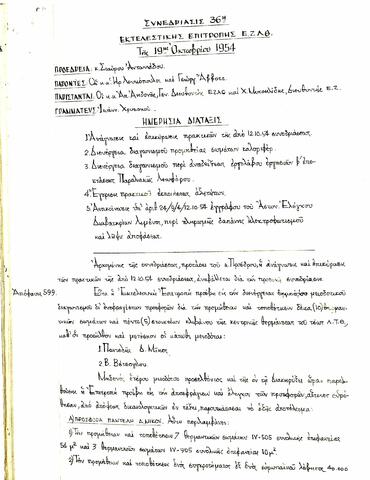 ΣΥΝΕΔΡΙΑΣΙΣ 36η
ΕΚΤΕΛΕΣΤΙΚΗΣ ΕΠΙΤΡΟΠΗΣ Ε.Ζ.Λ.Θ.
Της 19ης Οκτωβρίου 1954
ΠΡΟΕΔΡΕΙΑ: κ. Σταύρου Αντωνιάδου.
ΠΑΡΟΝΤΕΣ: Οι κ.κ. Ηρ. και Γεώργ.
ΠΑΡΙΣΤΑΝΤΑΙ: Οι κ.κ. Απ. Γεν. Διευθυντής ΕΖΛΘ και Χ. Διευθυντής Ε.Ζ.
ΓΡΑΜΜΑΤΕΥΣ: Ιωάν. Χρυσικού.
ΗΜΕΡΗΣΙΑ ΔΙΑΤΑΞΙΣ
1. Ανάγνωσις και επικύρωσις πρακτικών της από 12.10.54 συνεδριάσεως.
2. Διενέργεια διαγωνισμού προμηθείας σωμάτων καλοριφέρ.
3. Διενέργεια διαγωνισμού περί αναδείξεως εργολάβου εργασιών β' επε-
κτάσεως Παραλιακής Λεωφόρου.
4. Έγκρισις πρακτικού
5. Ανακοίνωσις της αρ. εγγράφου του Λιμένος, περί πληρωμής δαπάνης ηλεκτροφωτισμού
και λήψιν αποφάσεως.
Αρχομένης της συνεδριάσεως, προτάσει του κ. Προέδρου, η ανάγνωσις και επικύρωσις
των πρακτικών της από 12.10.54 συνεδριάσεως, αναβάλλεται διά την προσεχή συνεδρίασιν.
Απόφασις 599.
Είτα η Εκτελεστική Επιτροπή προέβη εις την διενέργειαν δημοσίου μειοδοτικού
διαγωνισμού δι' ενσφραγίστων προσφορών διά την προμήθειαν και τοποθέτησιν δέκα (10) θερμαν-
τικών σωμάτων και πέντε (5) της κεντρικής θερμάνσεως του νέου Λ.Τ.Θ.,
καθ' όν προσήλθον και μετέσχον οι κάτωθι μειοδόται:
1. Παντελής Δ. Νίκος.
2. Β. Βέτσογλου.
Μηδενός ετέρου μειοδότου προσελθόντος και της εν τη διακηρύξει ώρας παρελ-
θούσης η Επιτροπή προέβη εις την αποσφράγισιν και έλεγχον των προσφορών, αίτινες ευρέ-
θησαν, από απόψεως δικαιολογητικών εν τάξει, παρουσιάσασαι το εξής αποτέλεσμα:
α) ΠΡΟΣΦΟΡΑ ΠΑΝΤΕΛΗ Δ. ΝΙΚΟΥ. Αύτη περιλαμβάνει:
1) Την προμήθειαν και τοποθέτησιν 7 θερμαντικών σωμάτων IV-505 συνολικής επιφανείας
56 μ² και 3 θερμαντικών σωμάτων IV-905 συνολικής επιφανείας 10 μ².
2) Την προμήθειαν και τοποθέτησιν ενός συγκροτήματος